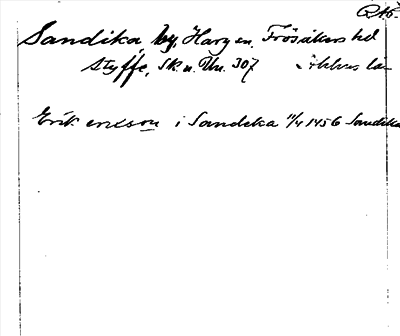 Sandika, by, Harg sn. Frösåkers hd
Styffe, Sk. u. Un. 307 
Erik ericson i Sandeka 11/4 1456 Sandika